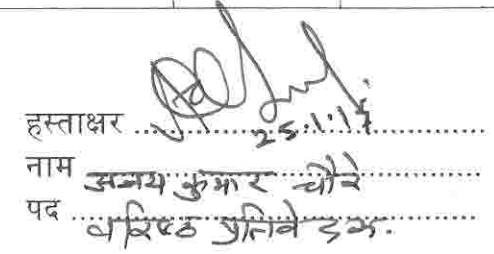 हस्ताक्षर ........................
25.1.17
नाम अजय कुमार चौरे
पद वरिष्ठ प्रतिवेदक.